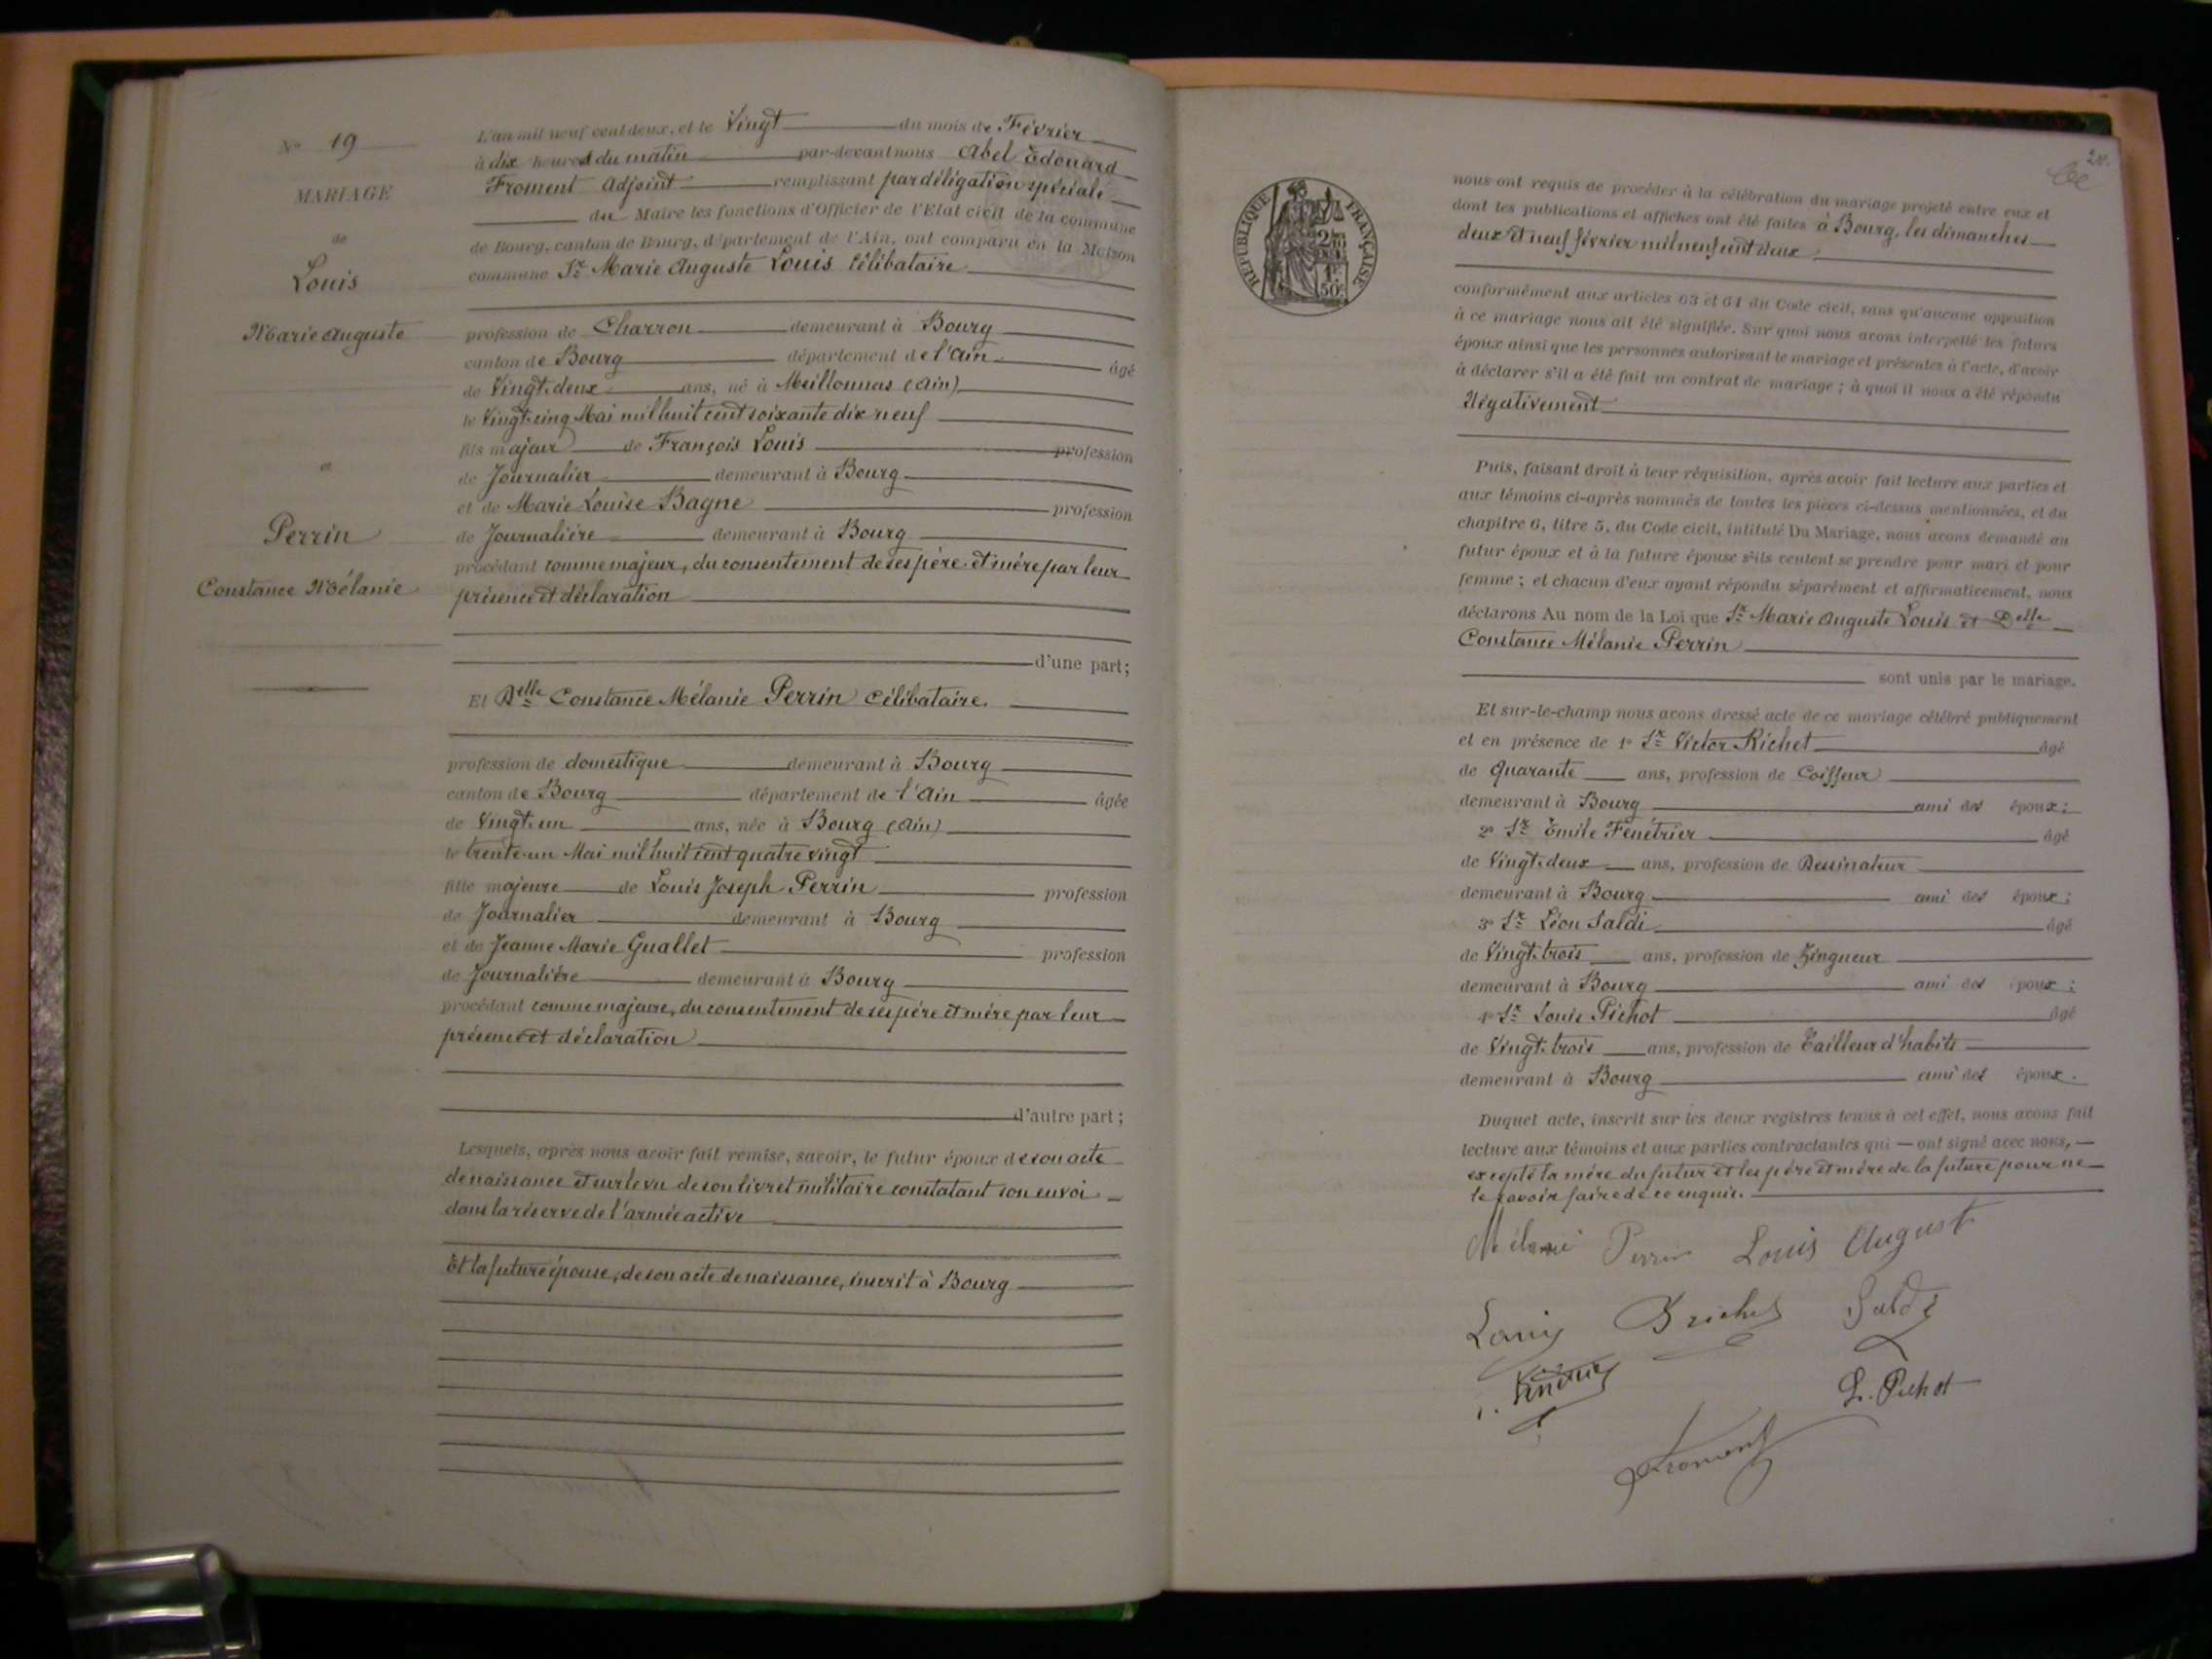 Nº 19
MARIAGE
de
Louis
Marie Auguste
et
Perrin
Constance Mélanie
L'an mil neuf cent deux, et le Vingt du mois de Février
à dix heures du matin par-devant nous Abel Edouard
Froment Adjoint remplissant par déligation spéciale
du Maire les fonctions d'Officier de l'Etat civil de la commune
de Bourg, canton de Bourg, département de l'Ain, ont comparu en la Maison
commune Sr Marie Auguste Louis Célibataire
profession de Charron demeurant à Bourg
canton de Bourg département de l'Ain âgé
de Vingt-deux ans, né à Meillonnas (Ain)
le Vingt-cinq Mai mil huit cent soixante dix neuf
fils majeur de François Louis profession
de Journalier demeurant à Bourg
et de Marie Louise Bagne profession
de Journalière demeurant à Bourg
procédant comme majeur, du consentement de ses père et mère par leur
présence et déclaration
d'une part;
Et Delle Constance Mélanie Perrin Célibataire.
profession de domestique demeurant à Bourg
canton de Bourg département de l'Ain âgée
de Vingt-un ans, née à Bourg (Ain)
le trente-un Mai mil huit cent quatre vingt
fille majeure de Louis Joseph Perrin profession
de Journalier demeurant à Bourg
et de Jeanne Marie Guallet profession
de Journalière demeurant à Bourg
procédant comme majeure, du consentement de ses père et mère par leur
présence et déclaration
d'autre part;
Lesquels, après nous avoir fait remise, savoir, le futur époux de son acte
de naissance et sur le vu de son livret militaire constatant son envoi
dans la réserve de l'armée active
Et la future épouse, de son acte de naissance, inscrit à Bourg
20.
REPUBLIQUE FRANÇAISE
50c
nous ont requis de procéder à la célébration du mariage projeté entre eux et
dont les publications et affiches ont été faites à Bourg, les dimanches
deux et neuf février mil neuf cent deux
conformément aux articles 63 et 64 du Code civil, sans qu'aucune opposition
à ce mariage nous ait été signifiée. Sur quoi nous avons interpellé les futurs
époux ainsi que les personnes autorisant le mariage et présentes à l'acte, d'avoir
à déclarer s'il a été fait un contrat de mariage; à quoi il nous a été répondu
Négativement
Puis, faisant droit à leur réquisition, après avoir fait lecture aux parties et
aux témoins ci-après nommés de toutes les pièces ci-dessus mentionnées, et du
chapitre 6, titre 5, du Code civil, intitulé Du Mariage, nous avons demandé au
futur époux et à la future épouse s'ils veulent se prendre pour mari et pour
femme; et chacun d'eux ayant répondu séparément et affirmativement, nous
déclarons Au nom de la Loi que Sr Marie Auguste Louis et Delle
Constance Mélanie Perrin
sont unis par le mariage.
Et sur-le-champ nous avons dressé acte de ce mariage célébré publiquement
et en présence de 1º Sr Victor Richet âgé
de quarante ans, profession de Coiffeur
demeurant à Bourg ami des époux;
2º Sr Emile Fenétrier âgé
de Vingt-deux ans, profession de Dessinateur
demeurant à Bourg ami des époux;
3º Sr Léon Saldi âgé
de Vingt-trois ans, profession de Zingueur
demeurant à Bourg ami des époux;
4º Sr Louis Pichot âgé
de Vingt-trois ans, profession de Tailleur d'habits
demeurant à Bourg ami des époux.
Duquel acte, inscrit sur les deux registres tenus à cet effet, nous avons fait
lecture aux témoins et aux parties contractantes qui — ont signé avec nous, —
excepté la mère du futur et les père et mère de la future pour ne
le savoir faire de ce enquis.
Mélanie Perrin Louis August
Louis Saldi
L. Pichot
Froment